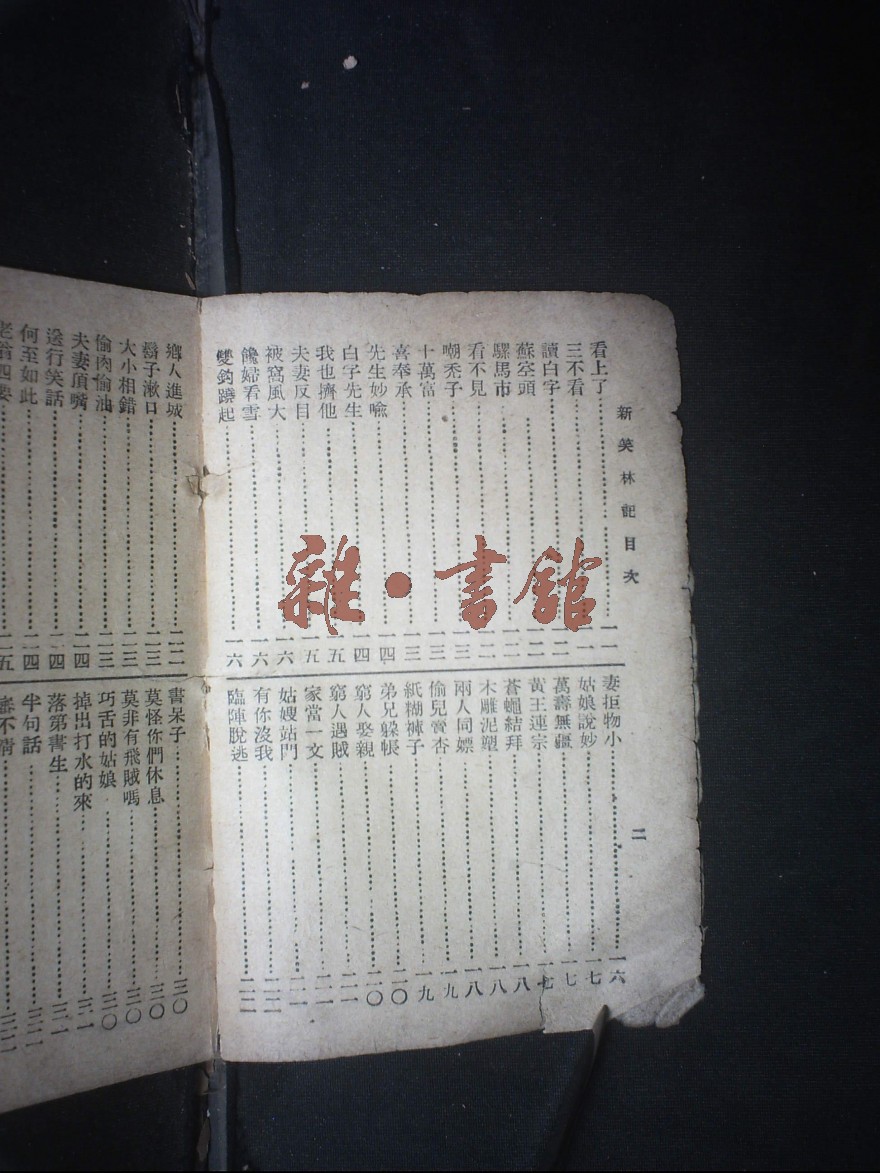 新笑林記目次
二
看上了……一一
三不看……一一
讀白字……一二
蘇空頭……一二
騾馬市……一二
看不見……一二
嘲禿子……一三
十萬富……一三
喜奉承……一三
先生妙喻……一四
白字先生……一四
我也擠他……一五
夫妻反目……一五
被窩風大……一六
饞婦看雪……一六
雙鈎蹺起……一六
妻拒物小……一六
姑娘說妙……一七
萬壽無疆……一七
黃王連宗……一七
蒼蠅結拜……一八
木雕泥塑……一八
兩人同嫖……一八
偷兒賞杏……一九
紙糊褲子……一九
弟兄躲帳……二〇
窮人娶親……二〇
窮人遇賊……二一
家當一文……二一
姑嫂站門……二一
有你沒我……二二
臨陣脫逃……二二
鄉人進城……二二
鬍子漱口……二三
大小相錯……二三
偷肉偷油……二三
夫妻頂嘴……二四
送行笑話……二四
何至如此……二四
四要……二五
書呆子……三〇
莫怪你們休息……三〇
莫非有飛賊嗎……三〇
巧舌的姑娘……三〇
掉出打水的來……三一
落第書生……三一
半句話……三二
不清……三二
雜·書館